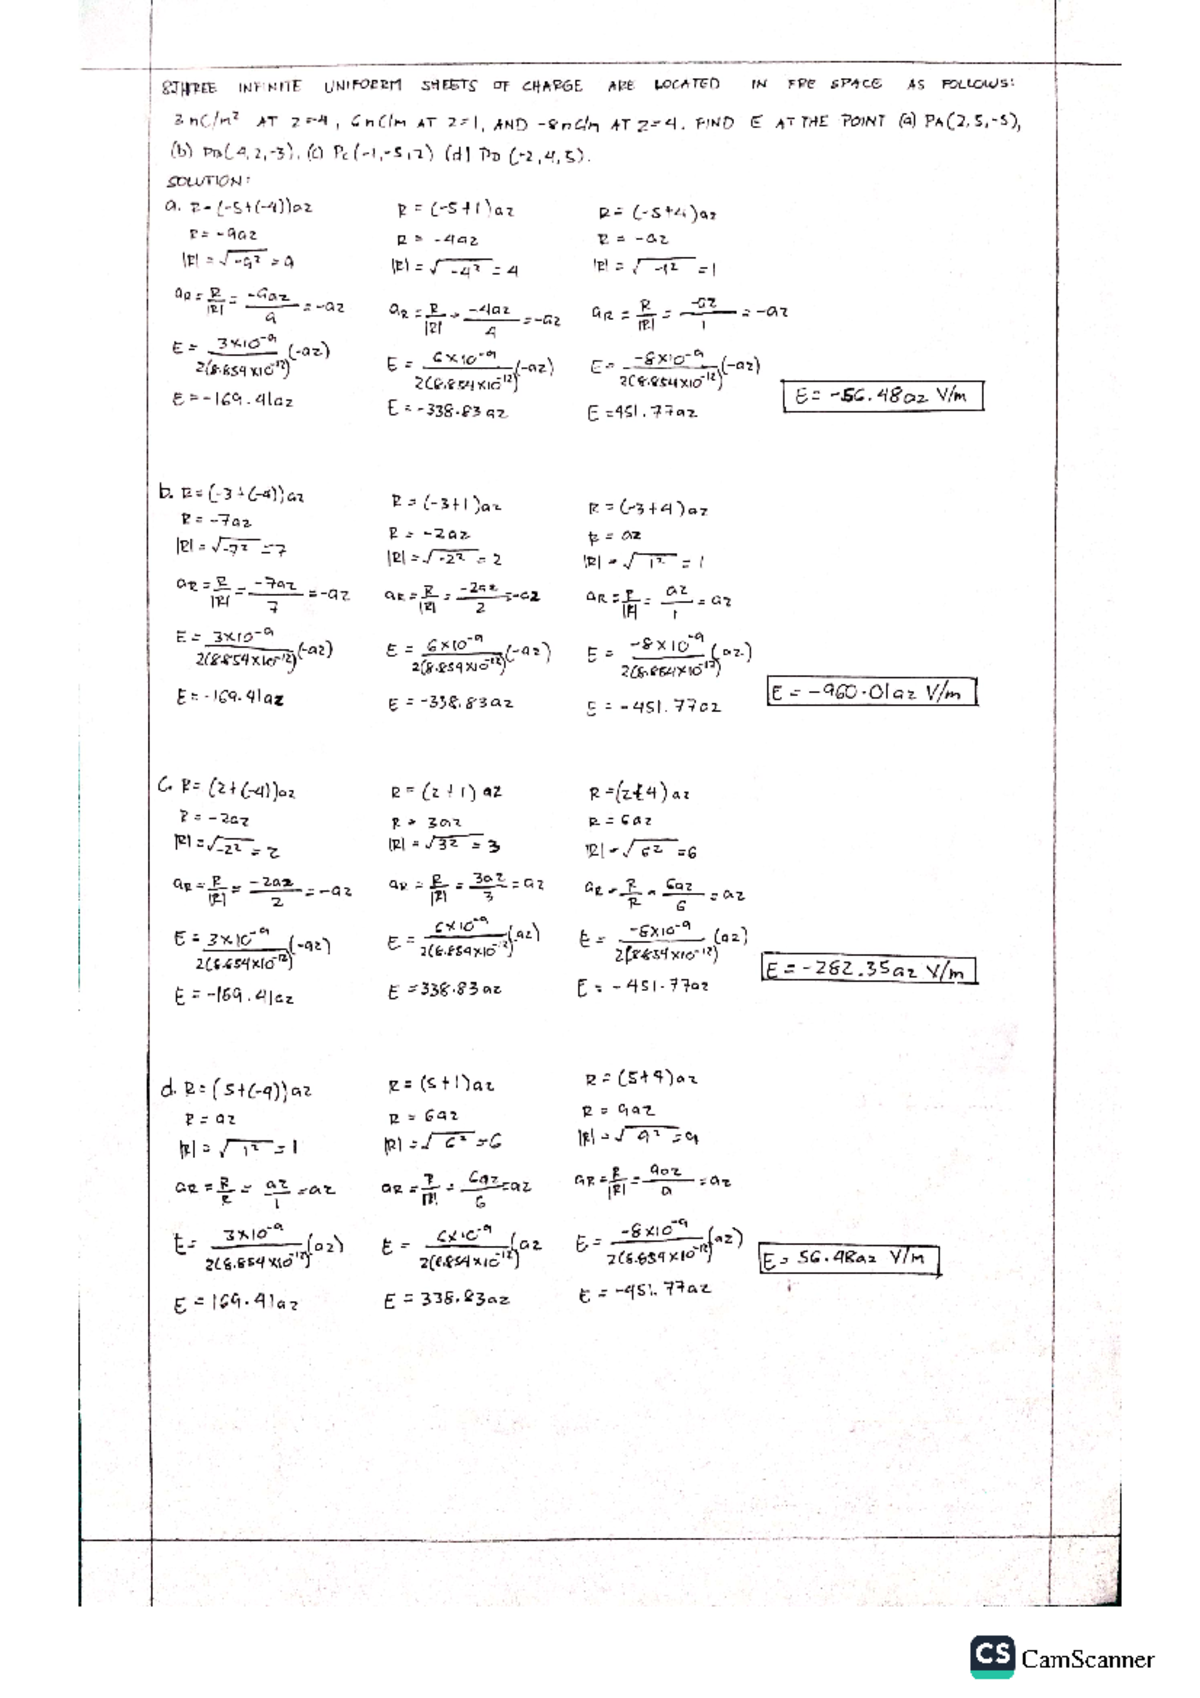 8] THREE INFINITE UNIFORM SHEETS OF CHARGE ARE LOCATED IN FRE SPACE AS FOLLOWS:
3 nC/m² AT Z=-4, 6 nC/m AT Z=1, AND -8 nC/m AT Z=4. FIND E AT THE POINT (a) PA(2,5,-5),
(b) PB(4,2,-3), (c) PC(-1,-5,2) (d) PD (-2,4,5).
SOLUTION:
a. R = (-5+(-4))az
R = -9az
|R| = √-9² = 9
aR = R/|R| = -9az/9 = -az
E = 3×10⁻⁹/2(8.854×10⁻¹²) (-az)
E = -169.41az
R = (-5+1)az
R = -4az
|R| = √-4² = 4
aR = R/|R| = -4az/4 = -az
E = 6×10⁻⁹/2(8.854×10⁻¹²) (-az)
E = -338.83 az
R = (-5+4)az
R = -az
|R| = √-1² = 1
aR = R/|R| = -az/1 = -az
E = -8×10⁻⁹/2(8.854×10⁻¹²) (-az)
E = 451.77az
E = -56.48az V/m
b. R = (-3+(-4))az
R = -7az
|R| = √-7² = 7
aR = R/|R| = -7az/7 = -az
E = 3×10⁻⁹/2(8.854×10⁻¹²) (-az)
E = -169.41az
R = (-3+1)az
R = -2az
|R| = √-2² = 2
aR = R/|R| = -2az/2 = -az
E = 6×10⁻⁹/2(8.854×10⁻¹²) (-az)
E = -338.83az
R = (-3+4)az
R = az
|R| = √1² = 1
aR = R/|R| = az/1 = az
E = -8×10⁻⁹/2(8.854×10⁻¹²) (az)
E = -451.77az
E = -960.01az V/m
c. R = (2+(-4))az
R = -2az
|R| = √-2² = 2
aR = R/|R| = -2az/2 = -az
E = 3×10⁻⁹/2(8.854×10⁻¹²) (-az)
E = -169.41az
R = (2+1)az
R = 3az
|R| = √3² = 3
aR = R/|R| = 3az/3 = az
E = 6×10⁻⁹/2(8.854×10⁻¹²) (az)
E = 338.83az
R = (2+4)az
R = 6az
|R| = √6² = 6
aR = R/R = 6az/6 = az
E = -8×10⁻⁹/2(8.854×10⁻¹²) (az)
E = -451.77az
E = -282.35az V/m
d. R = (5+(-4))az
R = az
|R| = √1² = 1
aR = R/R = az/1 = az
E = 3×10⁻⁹/2(8.854×10⁻¹²) (az)
E = 169.41az
R = (5+1)az
R = 6az
|R| = √6² = 6
aR = R/|R| = 6az/6 = az
E = 6×10⁻⁹/2(8.854×10⁻¹²) (az
E = 338.83az
R = (5+4)az
R = 9az
|R| = √9² = 9
aR = R/|R| = 9az/9 = az
E = -8×10⁻⁹/2(8.854×10⁻¹²) (az)
E = -451.77az
E = 56.48az V/m
CS CamScanner